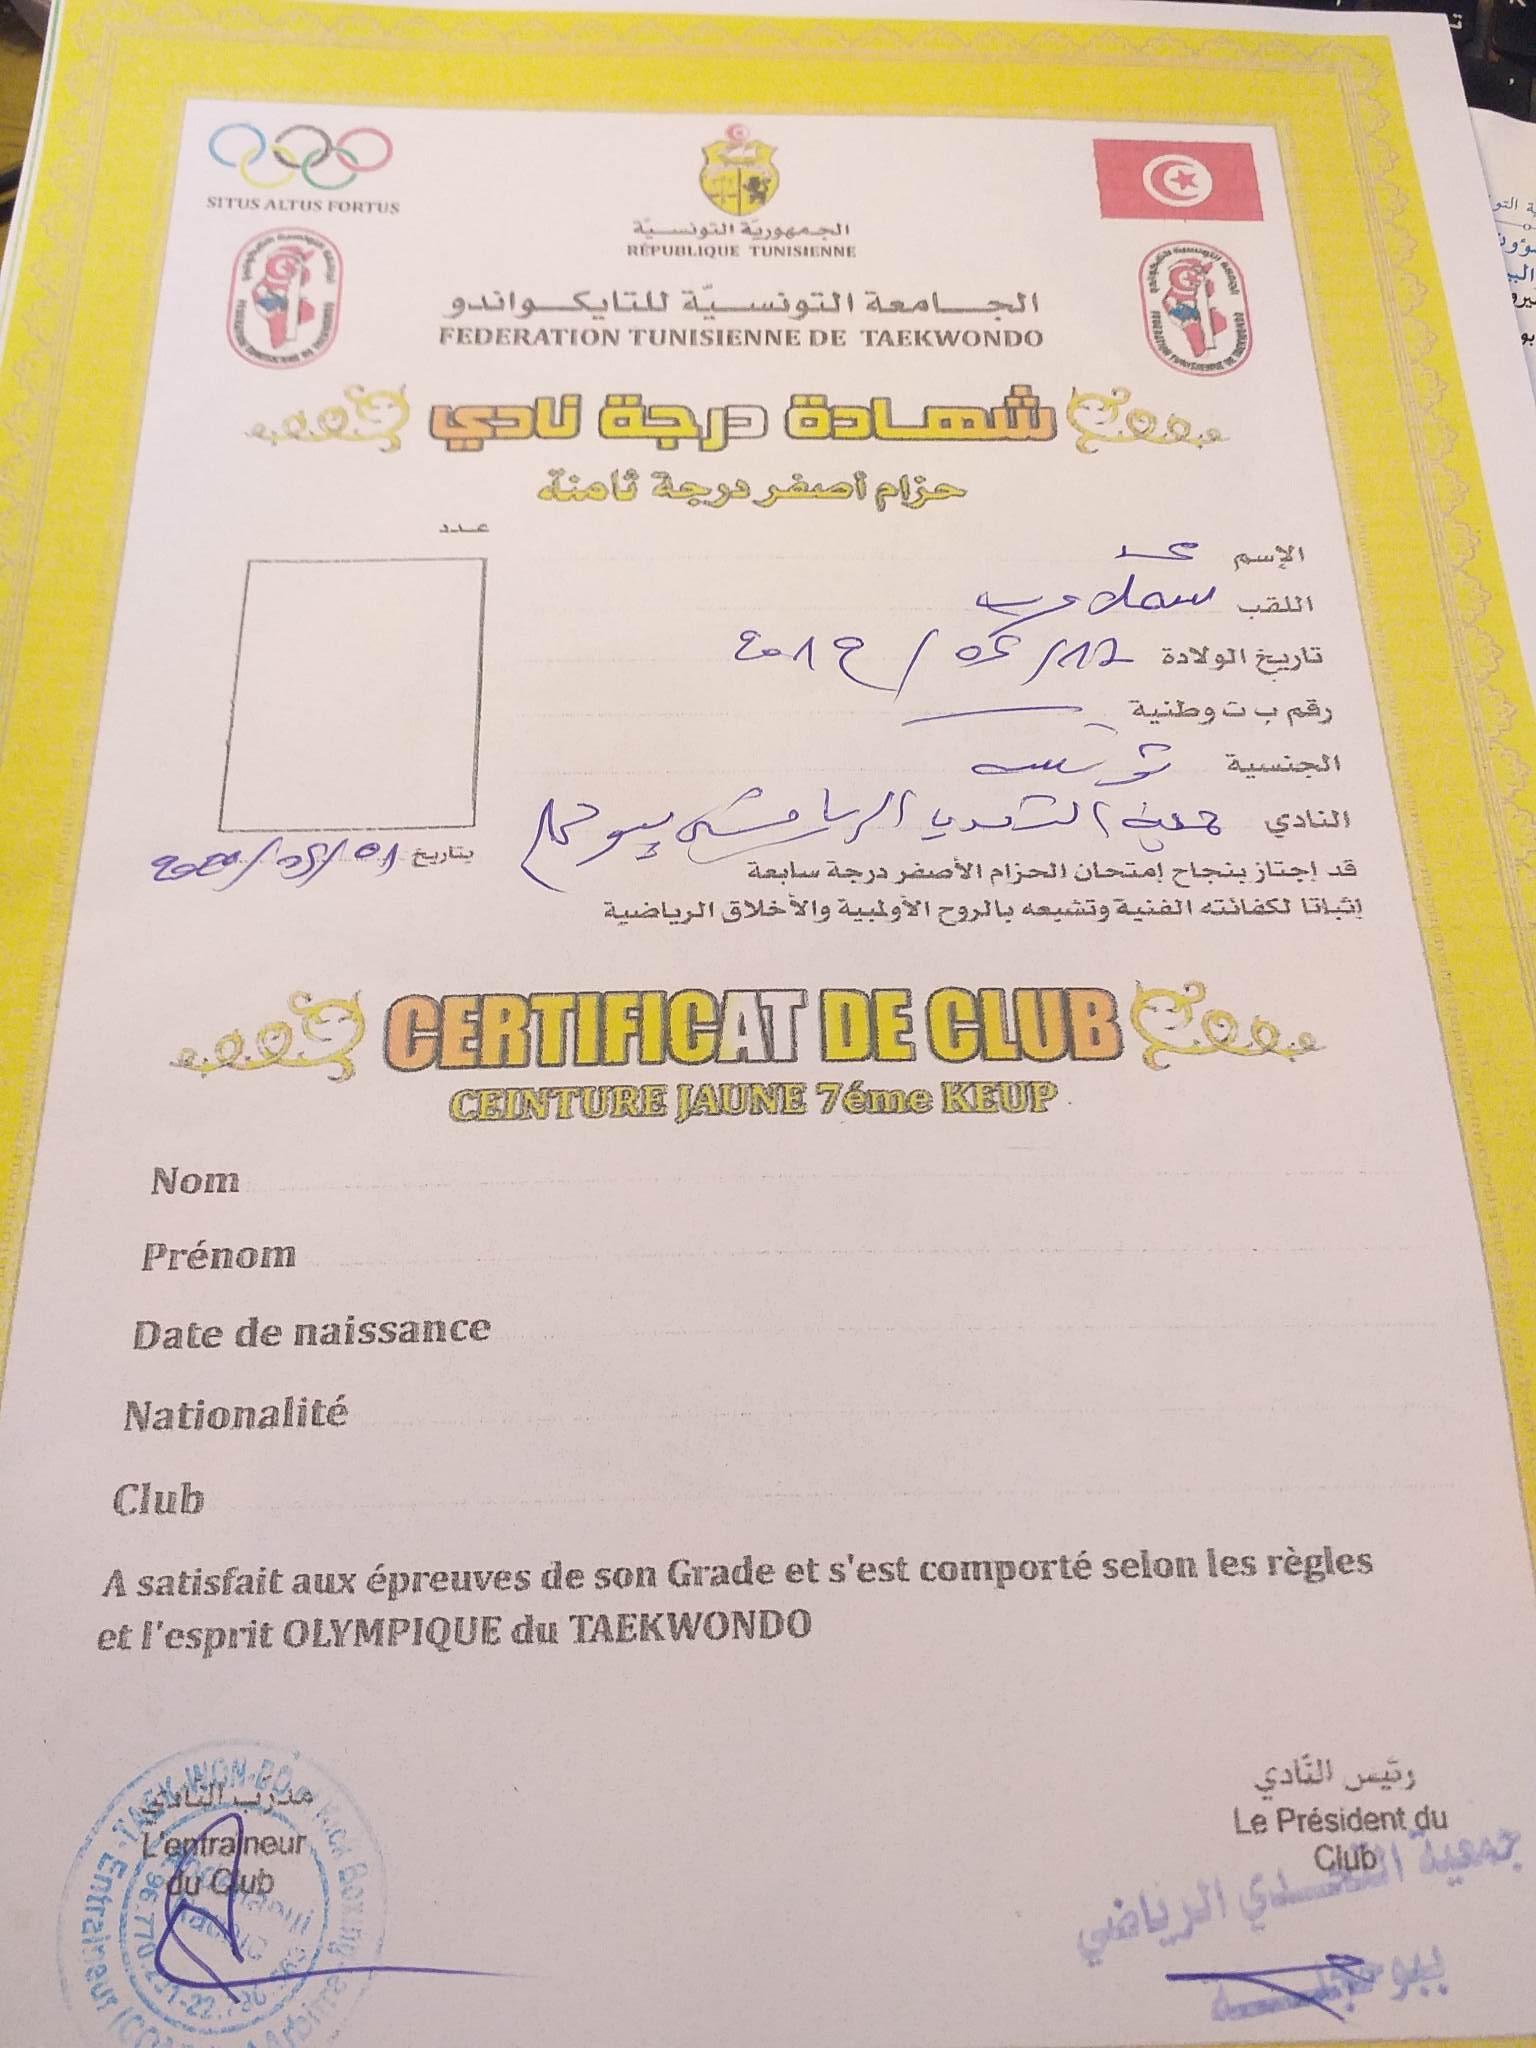 SITUS ALTUS FORTUS
الجمهورية التونسية
RÉPUBLIQUE TUNISIENNE
الجامعة التونسيّة للتايكواندو
FEDERATION TUNISIENNE DE TAEKWONDO
شهادة درجة نادي
حزام أصفر درجة ثامنة
عدد
الإسم محمد
اللقب
تاريخ الولادة
رقم ب ت وطنية
الجنسية تونسية
النادي جمعية التحدي الرياضي ببوحجلة
بتاريخ
قد إجتاز بنجاح إمتحان الحزام الأصفر درجة سابعة
إثباتا لكفائته الفنية وتشبعه بالروح الأولمبية والأخلاق الرياضية
CERTIFICAT DE CLUB
CEINTURE JAUNE 7éme KEUP
Nom
Prénom
Date de naissance
Nationalité
Club
A satisfait aux épreuves de son Grade et s'est comporté selon les règles
et l'esprit OLYMPIQUE du TAEKWONDO
مدرّب النّادي
L'entraineur
du Club
TAEK-WON-DO Kick Boxing
Entrainent
رئيس النّادي
Le Président du
Club
جمعية التحدي الرياضي
ببوحجلة